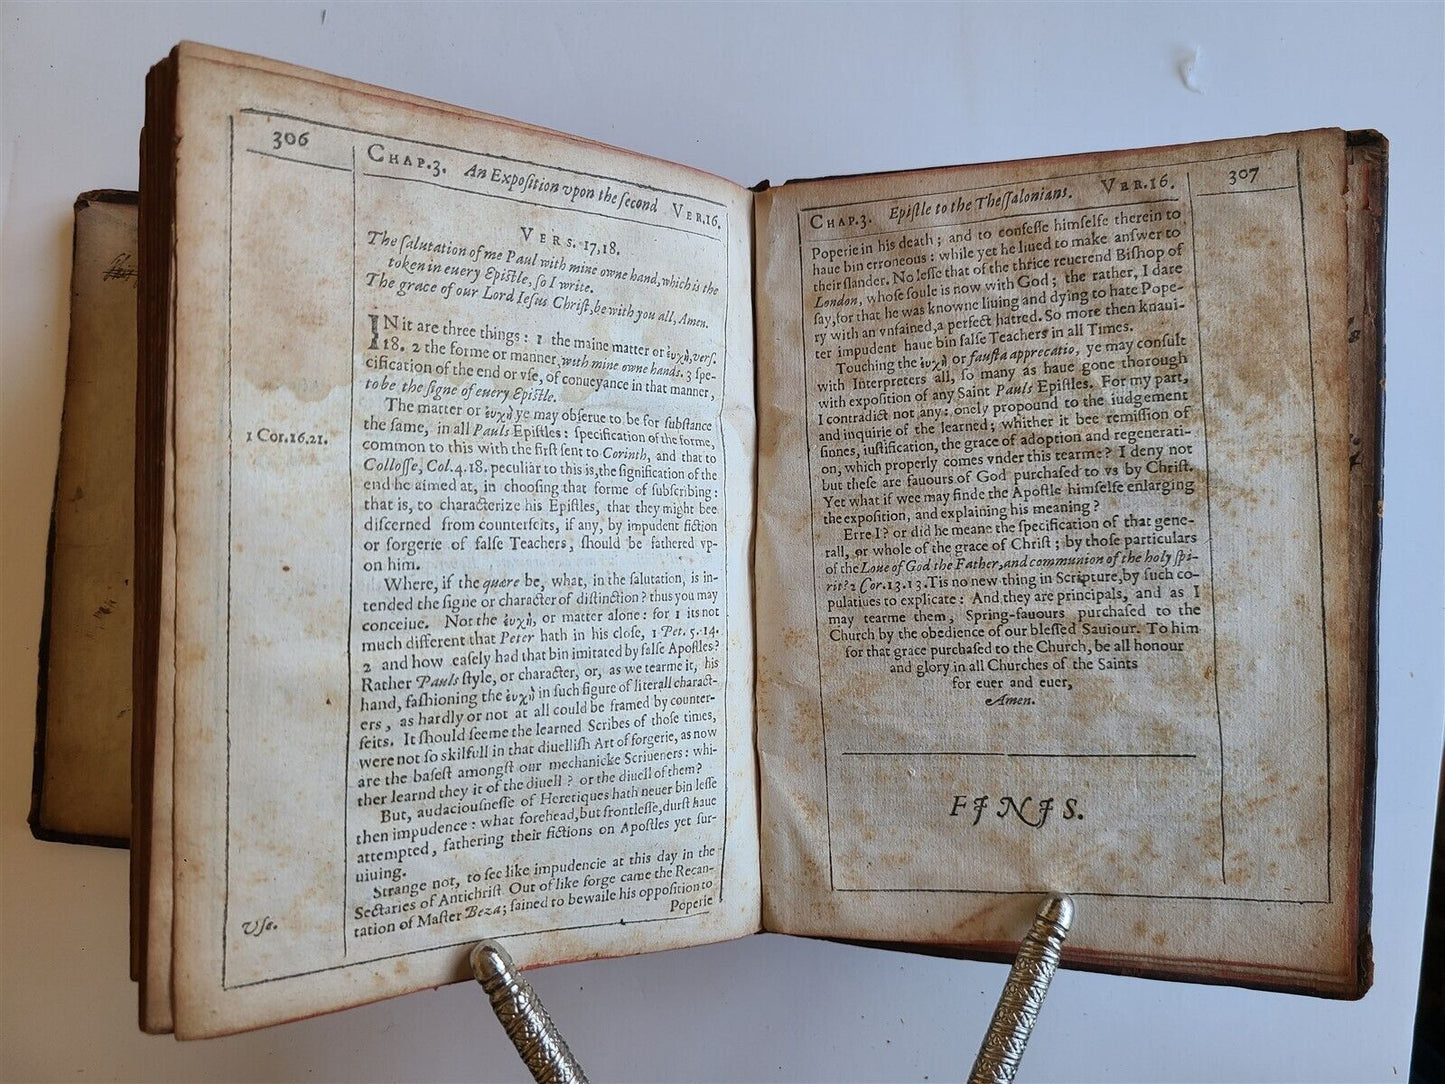 306
CHAP.3. An Expoſition vpon the ſecond VER.16.
VERS. 17,18.
The ſalutation of me Paul with mine owne hand, which is the
token in euery Epiſtle, ſo I write.
The grace of our Lord Ieſus Chriſt, be with you all, Amen.
IN it are three things: 1 the maine matter or ἐυχὴ, verſ.
18. 2 the forme or manner, with mine owne hands. 3 ſpe-
cification of the end or vſe, of conueyance in that manner,
to be the ſigne of euery Epiſtle.
The matter or ἐυχὴ ye may obſerue to be for ſubſtance
the ſame, in all Pauls Epiſtles: ſpecification of the forme,
1 Cor.16.21.
common to this with the firſt ſent to Corinth, and that to
Colloſſe, Col.4.18. peculiar to this is, the ſignification of the
end he aimed at, in chooſing that forme of ſubſcribing:
that is, to characterize his Epiſtles, that they might bee
diſcerned from counterfeits, if any, by impudent fiction
or forgerie of falſe Teachers, ſhould be fathered vp-
on him.
Where, if the quære be, what, in the ſalutation, is in-
tended the ſigne or character of diſtinction? thus you may
conceiue. Not the ἐυχὴ, or matter alone: for 1 its not
much different that Peter hath in his cloſe, 1 Pet. 5.14.
2 and how eaſely had that bin imitated by falſe Apoſtles?
Rather Pauls ſtyle, or character, or, as we tearme it, his
hand, faſhioning the ἐυχὴ in ſuch figure of literall charact-
ers, as hardly or not at all could be framed by counter-
feits. It ſhould ſeeme the learned Scribes of thoſe times,
were not ſo skilfull in that diuelliſh Art of forgerie, as now
are the baſeſt amongſt our mechanicke Scriueners: whi-
ther learnd they it of the diuell? or the diuell of them?
But, audaciouſneſſe of Heretiques hath neuer bin leſſe
then impudence: what forehead, but frontleſſe, durſt haue
attempted, fathering their fictions on Apoſtles yet ſur-
uiuing.
Strange not, to ſee like impudencie at this day in the
Sectaries of Antichriſt Out of like forge came the Recan-
Vſe.
tation of Maſter Beza; fained to bewaile his oppoſition to
Poperie
307
CHAP.3. Epiſtle to the Theſſalonians. VER.16.
Poperie in his death; and to confeſſe himſelfe therein to
haue bin erroneous: while yet he liued to make anſwer to
their ſlander. No leſſe that of the thrice reuerend Biſhop of
London, whoſe ſoule is now with God; the rather, I dare
ſay, for that he was knowne liuing and dying to hate Pope-
ry with an vnfained, a perfect hatred. So more then knaui-
ter impudent haue bin falſe Teachers in all Times.
Touching the ἐυχὴ or fauſta apprecatio, ye may conſult
with Interpreters all, ſo many as haue gone thorough
with expoſition of any Saint Pauls Epiſtles. For my part,
I contradict not any: onely propound to the iudgement
and inquirie of the learned; whither it bee remiſſion of
ſinnes, iuſtification, the grace of adoption and regenerati-
on, which properly comes vnder this tearme? I deny not
but theſe are fauours of God purchaſed to vs by Chriſt.
Yet what if wee may finde the Apoſtle himſelfe enlarging
the expoſition, and explaining his meaning?
Erre I? or did he meane the ſpecification of that gene-
rall, or whole of the grace of Chriſt; by thoſe particulars
of the Loue of God the Father, and communion of the holy ſpi-
rit? 2 Cor.13.13. Tis no new thing in Scripture, by ſuch co-
pulatiues to explicate: And they are principals, and as I
may tearme them, Spring-fauours purchaſed to the
Church by the obedience of our bleſſed Sauiour. To him
for that grace purchaſed to the Church, be all honour
and glory in all Churches of the Saints
for euer and euer,
Amen.
FINIS.